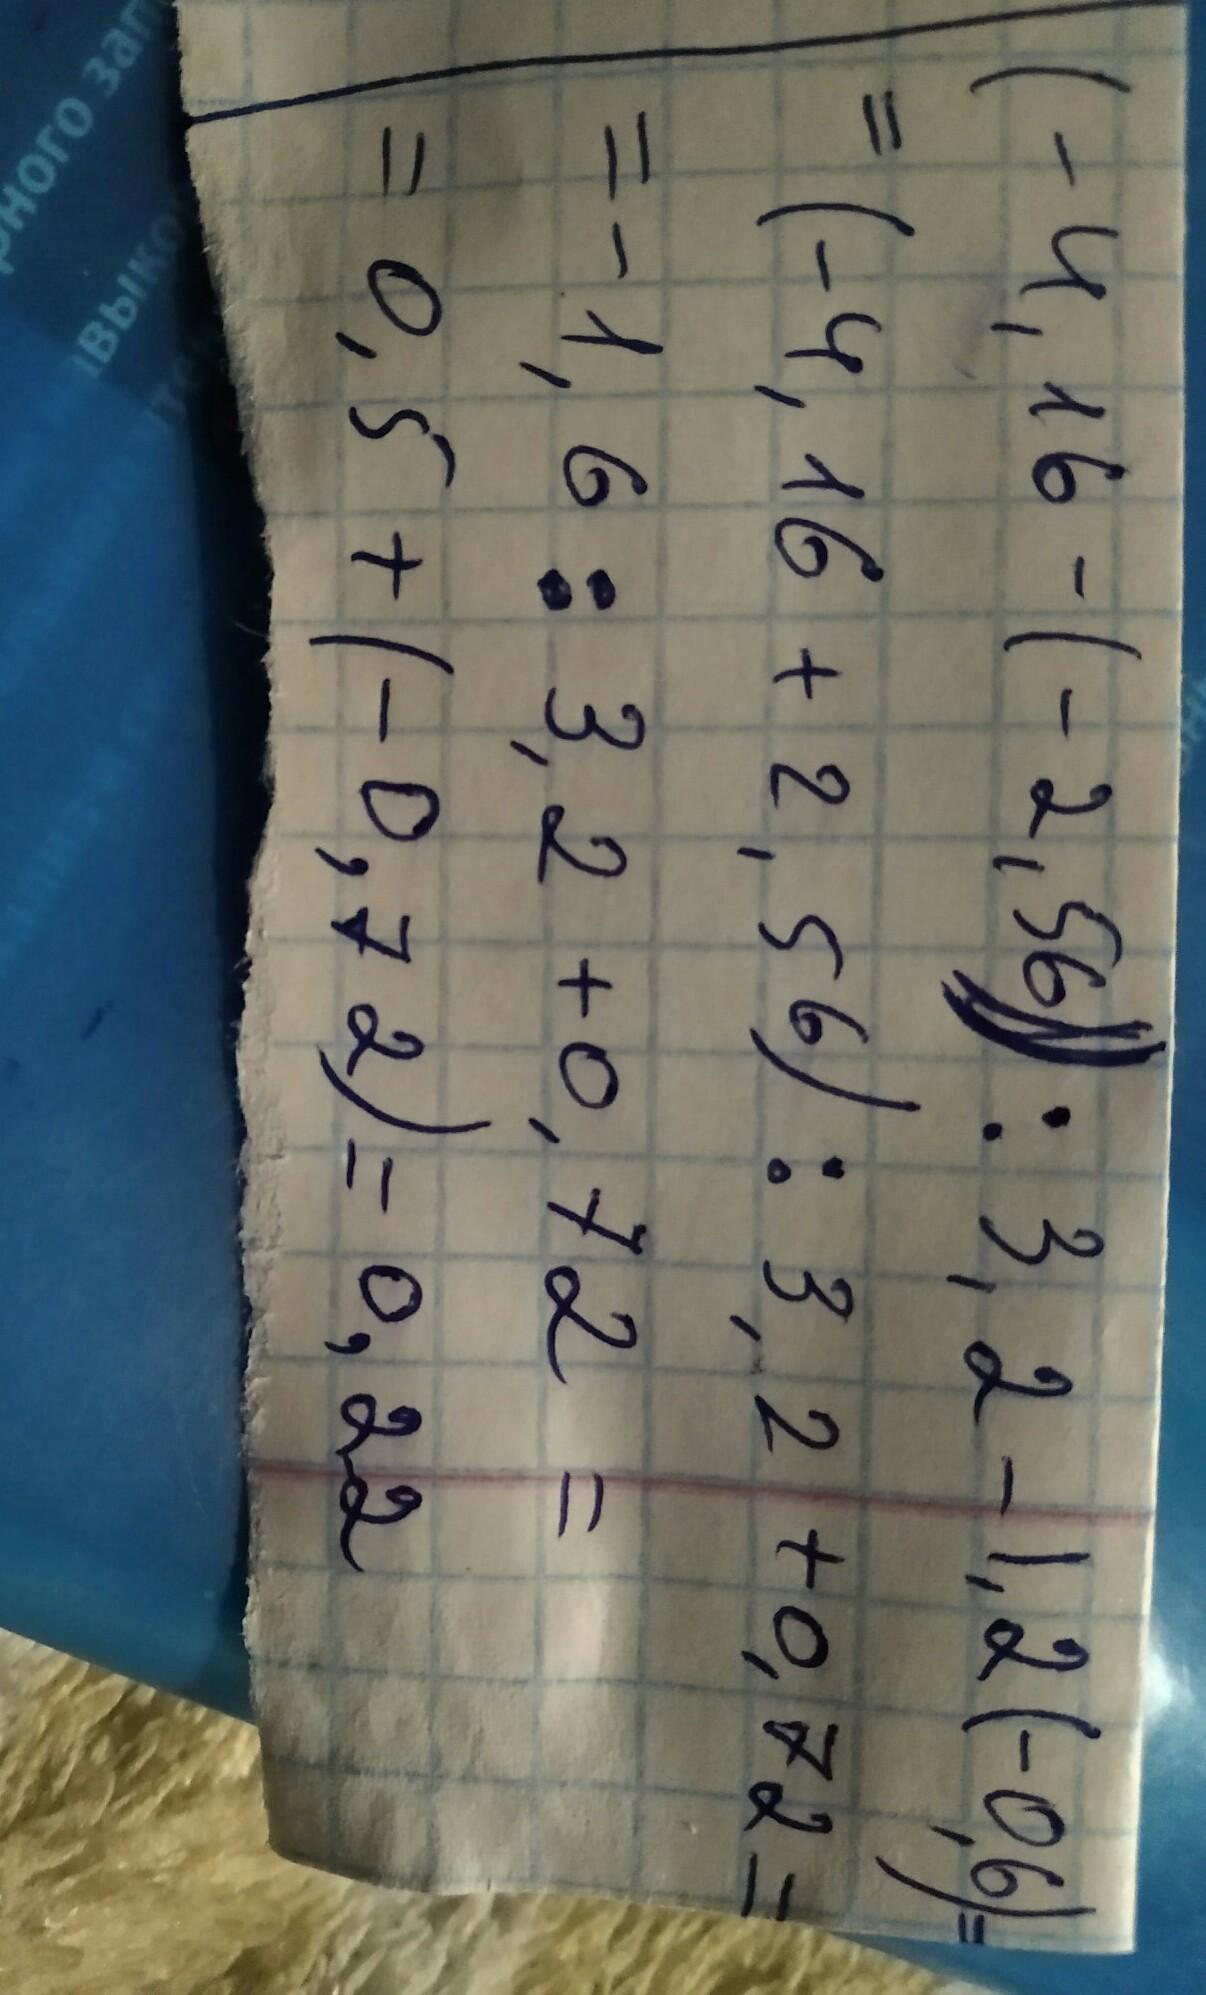 (-4,16-(-2,56)):3,2-1,2(-0,6)=
=(-4,16+2,56):3,2+0,72=
=-1,6:3,2+0,72=
=0,5+(-0,72)=0,22